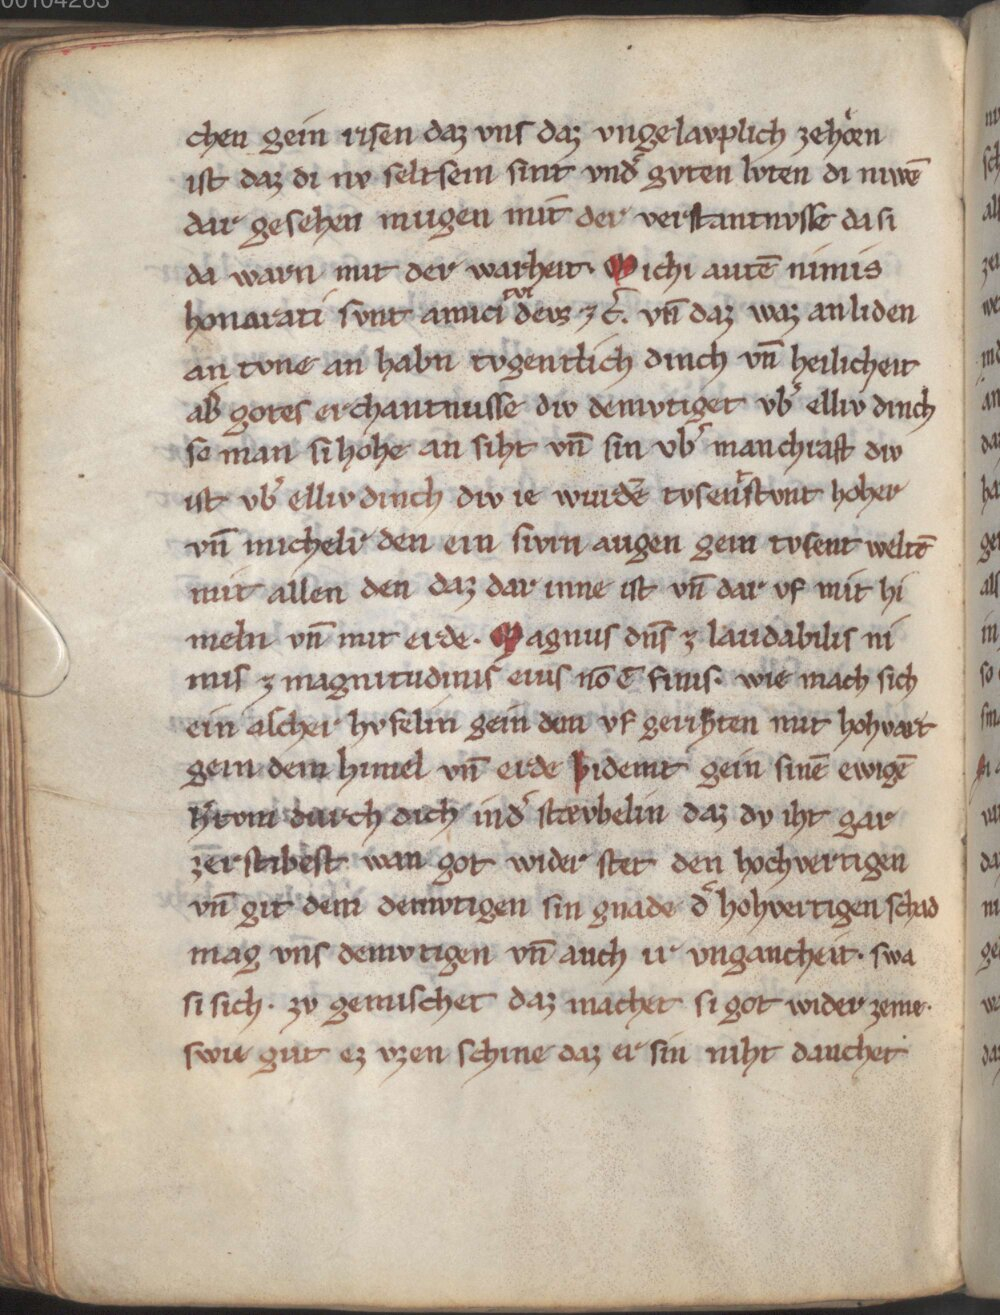 00104263
chen gein risen daz vns daz vngelavplich zehoͤrn
ist daz di nv seltsein sint vnd͛ gvten lvten di niwē
dar gesehen mugen mit der verstantnvsse da si
da warn mit der warheit. Michi autē nimis
honorati svnt amici tvi devs ⁊ c̄. vn̄ daz waz an liden
an tvne an habn tvgentlich dinch vn̄ heilicheit
ab gotes erchantnusse div demvtiget vb͛ elliv dinch
so man si hohe an siht vn̄ sin vb͛ manchraft div
ist vb͛ elliv dinch div ie wurdē tvsentstvnt hoher
vn̄ micheli den ein sivrn augen gein tvsent weltē
mit allen den daz dar inne ist vn̄ dar vf mit hi
meln vn̄ mit erde. Magnus dn̄s ⁊ laudabilis ni
mis ⁊ magnitudinis eius nō ē finis. wie mach sich
ein ascher hvfelin gein dem vf gerihten mit hohvart
gein dem himel vn̄ erde bidemt gein sinē ewigē
strvm durch dich ind͛ stævbelin daz dv iht gar
zerstibest wan got wider stet den hochvertigen
vn̄ git dem demvtigen sin gnade d͛ hohvertigen schad
mag vns demvtigen vn̄ auch ir vngancheit. swa
si sich. zv gemischet daz machet si got wider zeme.
swie gut ez vzen schine daz er sin niht dauchet